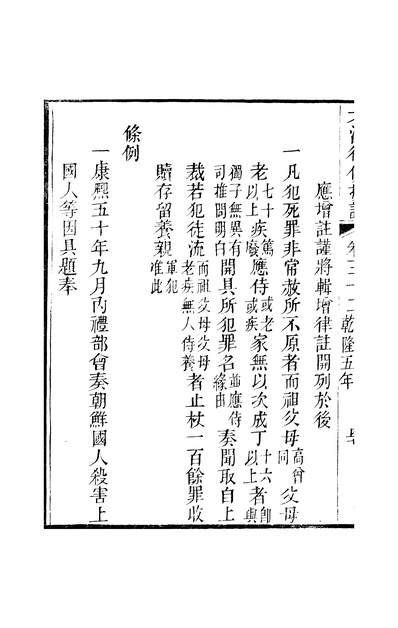 乾隆五年
應增註謹將輯增律註開列於後
一凡犯死罪非常赦所不原者而祖父母高曾同父母
老七十以上疾篤廢應侍或老或疾家無以次成丁十六以上者即與
獨子無異有司推問明白開具所犯罪名並應侍緣由奏聞取自上
裁若犯徒流而祖父母父母老疾無人侍養者止杖一百餘罪收
贖存留養親軍犯准此
條例
一康熙五十年九月內禮部會奏朝鮮國人殺害上
國人等因具題奉